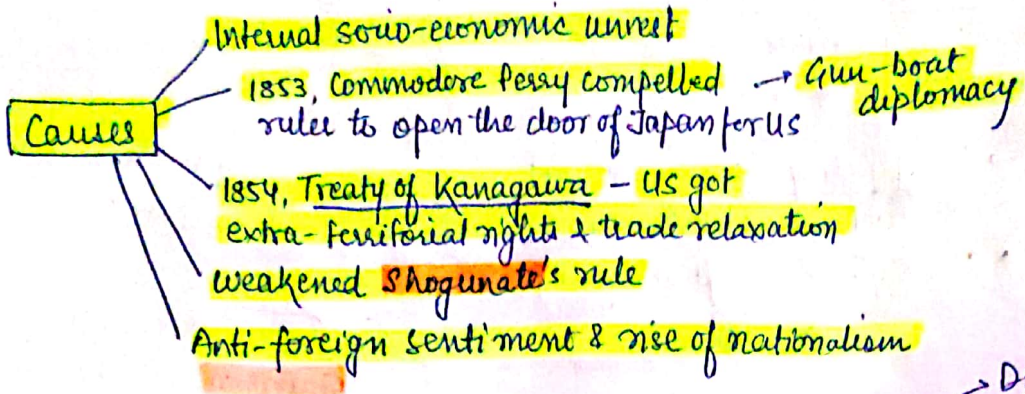 Internal socio-economic unrest
1853, Commodore Perry compelled → Gun-boat
diplomacy
ruler to open the door of Japan for US
Causes
1854, Treaty of Kanagawa – US got
extra-territorial rights & trade relaxation
weakened Shogunate's rule
Anti-foreign sentiment & rise of nationalism
→ D